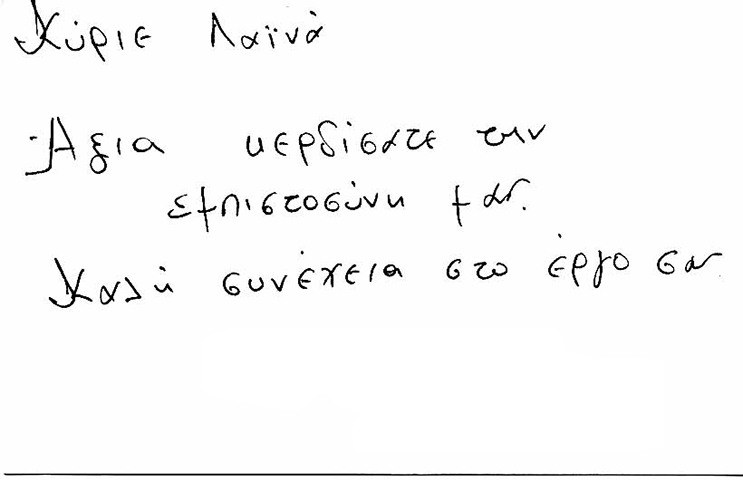 Κύριε Λαϊνά
Άξια κερδίσατε την
εμπιστοσύνη μας.
Καλή συνέχεια στο έργο σας